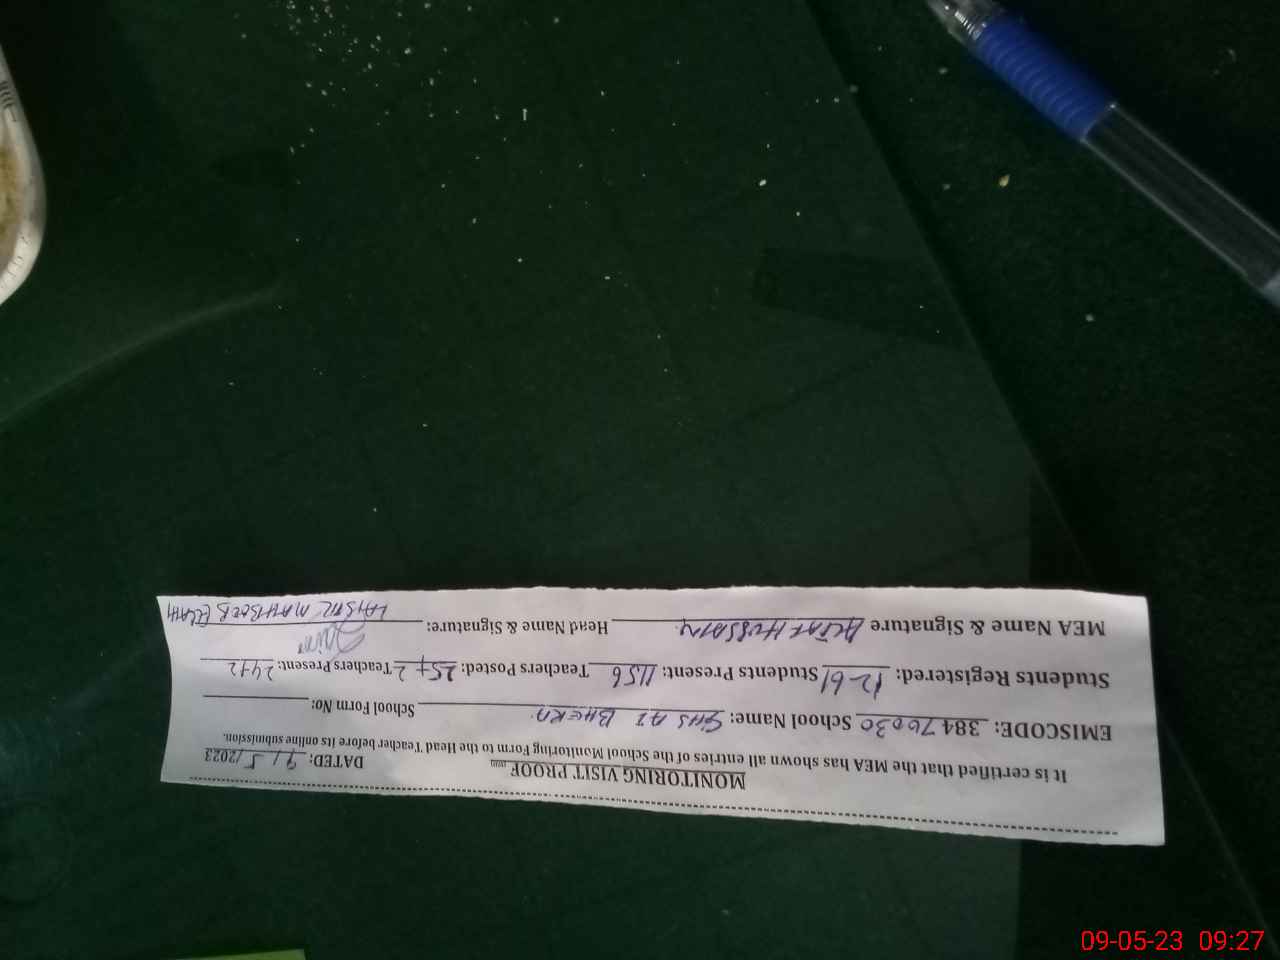 MONITORING VISIT PROOF
DATED: 9/5/2023
It is certified that the MEA has shown all entries of the School Monitoring Form to the Head Teacher before its online submission.
EMISCODE: 38470030 School Name: GHS AZ BHERA School Form No:
Students Registered: 1261 Students Present: 1156 Teachers Posted: 25+2 Teachers Present: 24+2
MEA Name & Signature ALTAF HUSSAIN Head Name & Signature:
09-05-23 09:27